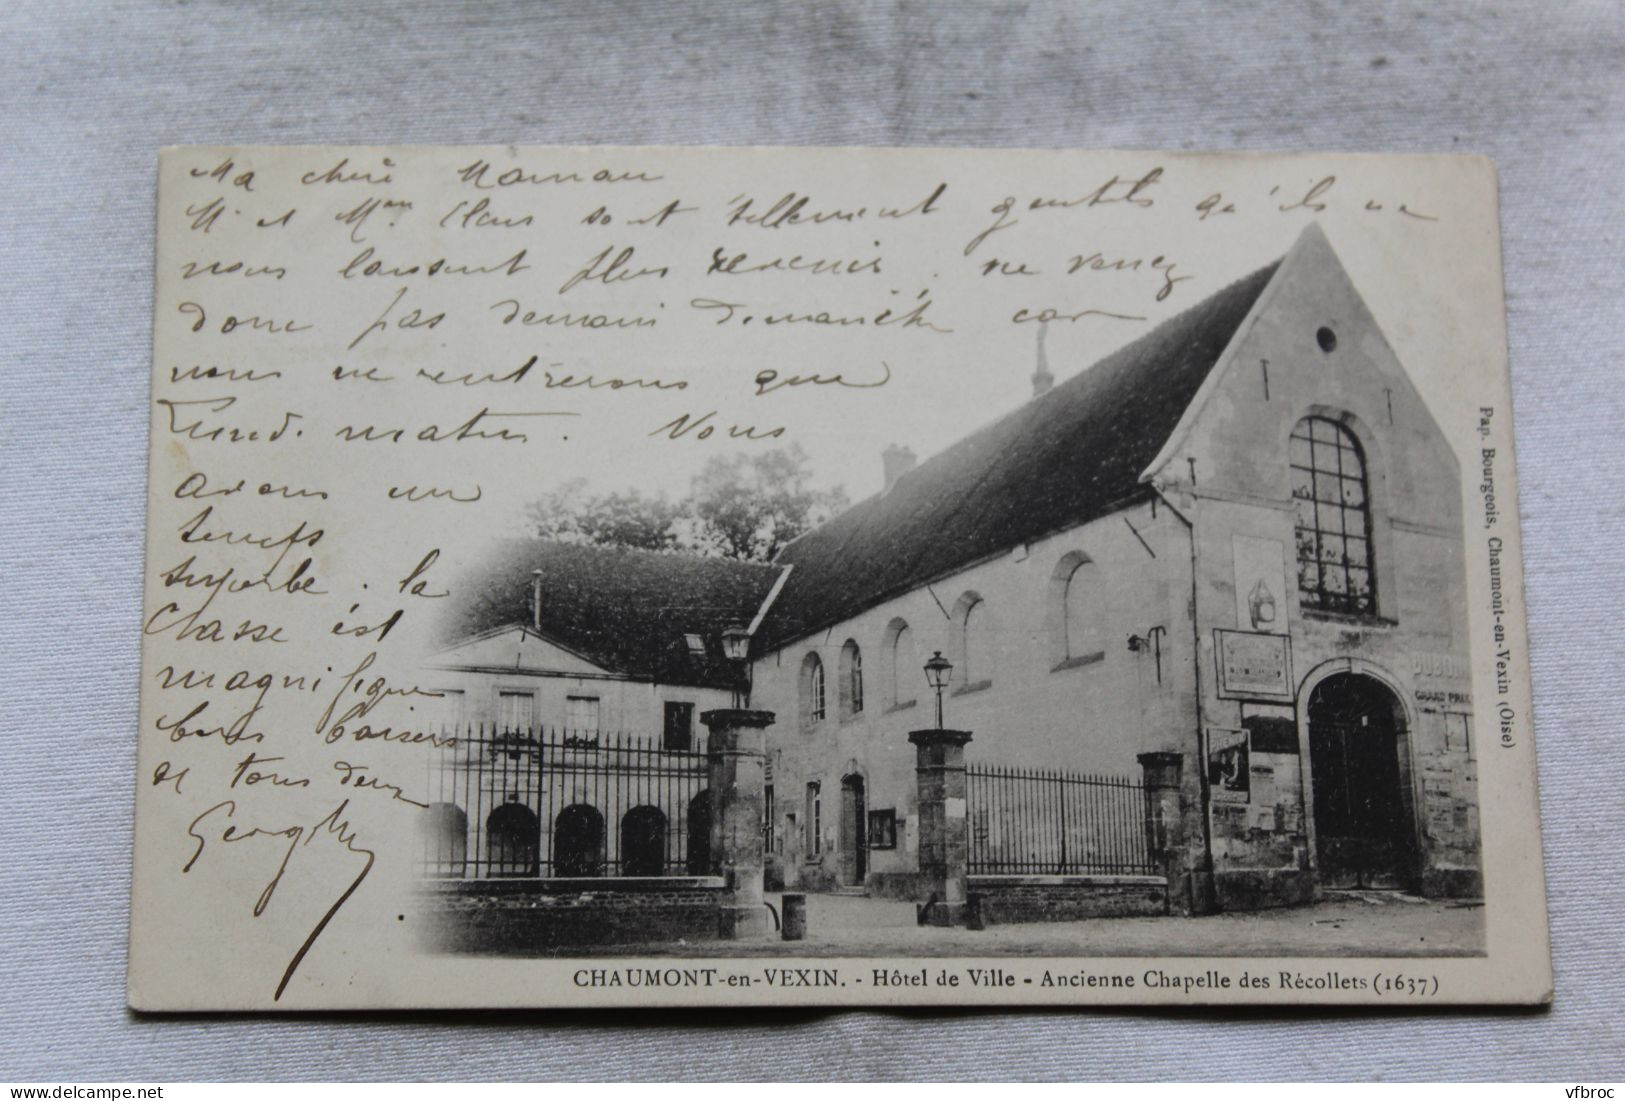 Ma chère Maman
M. et Mme Claus sont tellement gentils qu'ils ne
nous laissent plus revenir. ne venez
donc pas demain dimanche car
nous ne rentrerons que
Lundi matin. Nous
avons un
temps
superbe. la
Chasse est
magnifique
bons baisers
de tous deux
CHAUMONT-en-VEXIN. - Hôtel de Ville - Ancienne Chapelle des Récollets (1637)
Pap. Bourgeois, Chaumont-en-Vexin (Oise)
GRAND PRIX
vfbroc